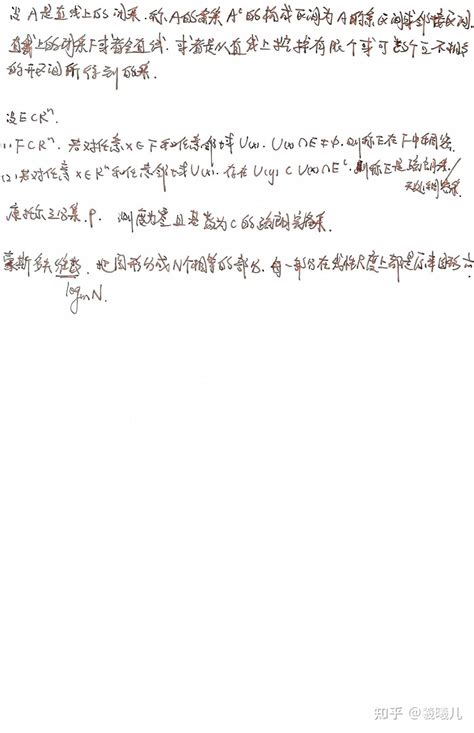 设A是直线上的闭集,称A的余集Aᶜ的构成区间为A的余区间或邻接区间.
直线上的闭集F或者全直线,或者是从直线上挖掉有限个或可数个互不相交
的开区间所得到的集.
设E⊂Rⁿ.
(1) F⊂Rⁿ. 若对任意x∈F和任意邻域U(x), U(x)∩E≠∅. 则称E在F中稠密.
(2) 若对任意x∈Rⁿ和任意邻域U(x), 存在U(y)⊂U(x)∩Eᶜ. 则称E是疏朗集/
无处稠密集.
康托尔三分集. P. 测度为零且基数为c的疏朗完备集.
豪斯多夫维数. 把图形分成N个相等的部分,每一部分在线性尺度上都是原来图形1/m.
logₘN.
知乎 @羲曦儿